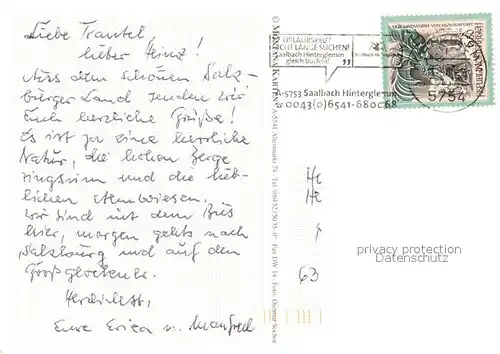 Liebe Trautel,
lieber Heinz!
Aus dem schönen Salz-
burger Land senden wir
Euch herzliche Grüße!
Es ist ja eine herrliche
Natur, die hohen Berge
ringsum und die lieb-
lichen Almwiesen.
Wir sind mit dem Bus
hier, morgen gehts nach
Salzburg und auf den
Großglockner.
Herzlichst,
Eure Erica u. Manfred
© MONTANA KARTEN A-5541 Altenmarkt 74 · Tel. 0 64 52 / 50 35-0 · Fax DW 14 · Foto: Dietmar Sochor
URLAUBSREIF?
NICHT LANGE SUCHEN!
Saalbach Hinterglemm
gleich buchen!
A-5753 Saalbach Hinterglemm
0043(0)6541-680068
5754
REPUBLIK ÖSTERREICH
63
privacy protection
Datenschutz